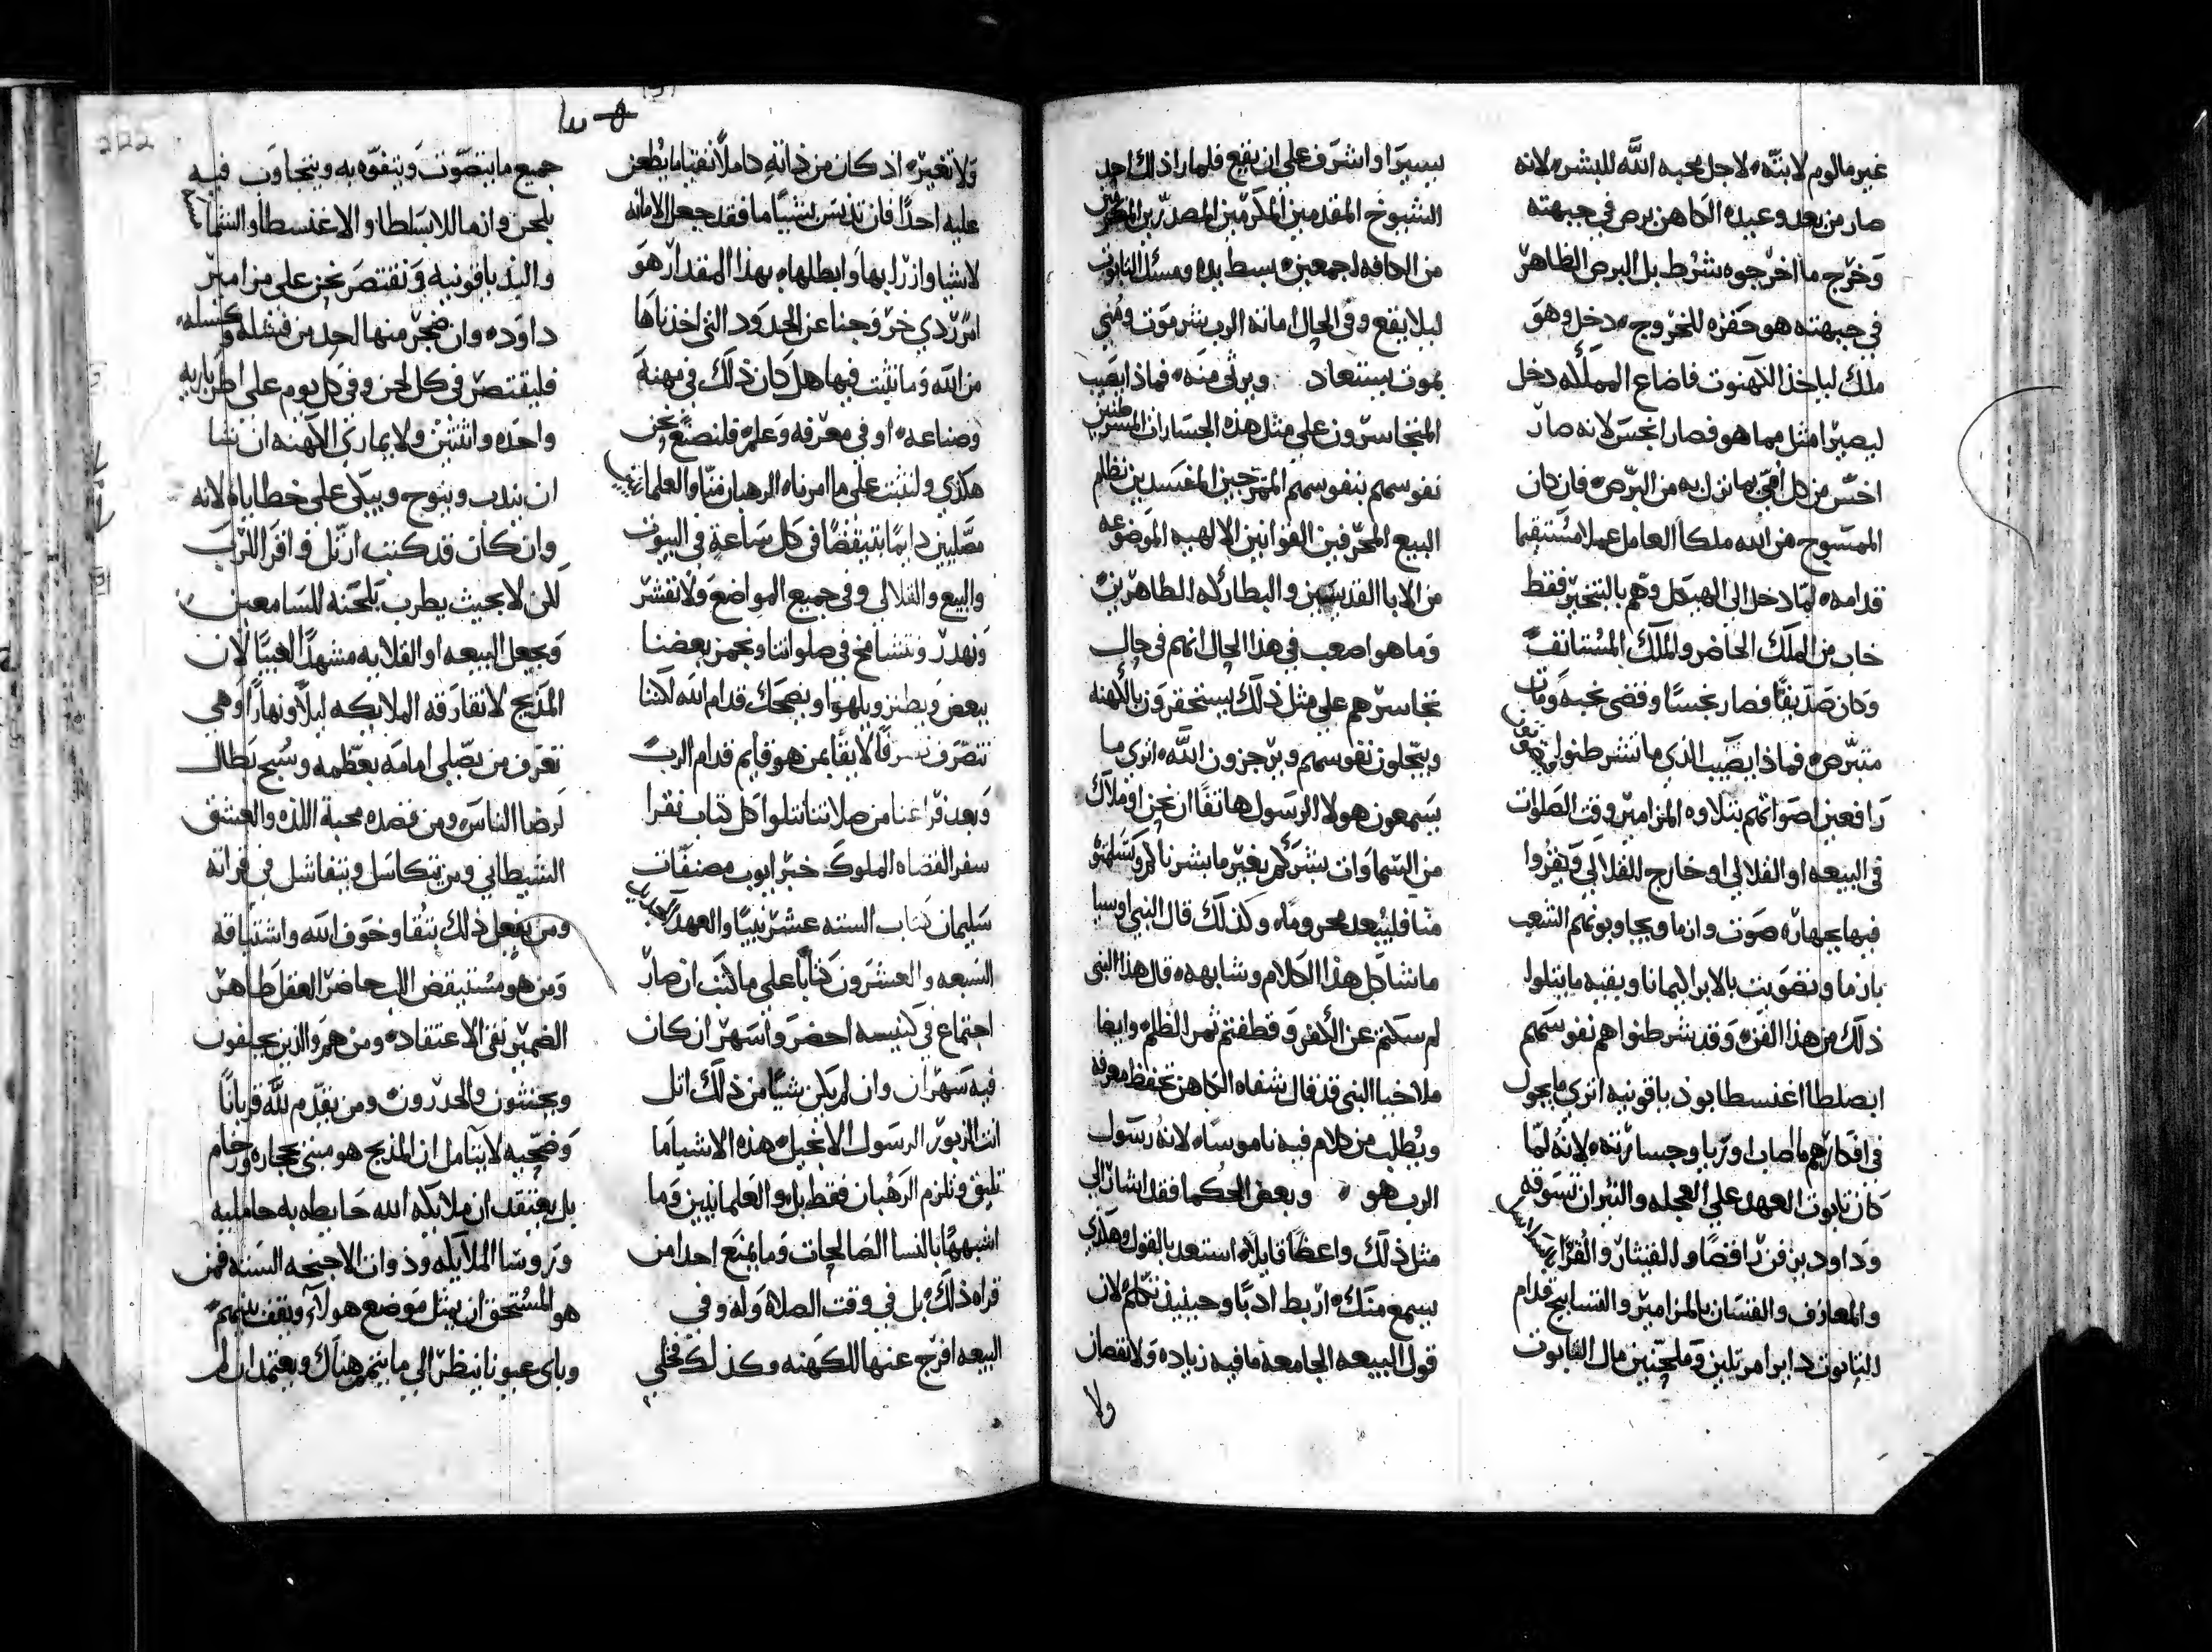 غير مالوم لابنته لاجل محبه الله للبشر لانه
صار من بعد وعيده الكاهن برص في جبهته
وخرج ما اخرجوه بشرط بل البرص الظاهر
في جبهته هو حفزه للخروج دخل وهو
ملك لياخذ الكهنوت فاضاع المملكه دخل
ليصير امثل مما هو فصار انجس لانه صار
اخس من كل امي بما نزل به من البرص فان كان
الممسوح من الله ملكا العامل عملا مستقيما
قدامه لما دخل الي الهيكل وهم بالتبخير فقط
خاب من الملك الحاضر والملك المستانف
وكان صديقا فصار نجسا وقضى نحبه ومات
متبرص فماذا يصيب الذي ما تشرطنوا
رافعين اصواتهم بتلاوه المزامير وقت الصلوات
في البيعه او القلالي او خارج القلالي ويقروا
فيها بجهاره صوت وانما ويجاوبونهم الشعب
بانما وتضويت بالابراليمانا وبقيه ما يتلوا
ذلك من هذا الفن وقد شرطنوا هم نفوسهم
ابصلطا اغنسطا بوذباقونيه اتري ما يجول
في افكارهم ما اصاب اوزيا وجسارته لانه لما
كان تابوت العهد علي العجله والثيران تسوقه
وداود بزفن راقصا والقيثار والقرا
والمعازف والقسان بالمزامير والتسابيح قدام
التابوت دايرا مرتلين وملحنين مال التابوت
يسيرا واشرف علي ان يقع فلما راذلك احد
الشيوخ المقدمين المكرمين المصدرين
من الكافه اجمعين بسط يده ومسك التابوت
ليلا يقع وفي الحال اماته الرب بشر موت ومني
بموت يستعاد ويرثى منه فماذا يصيب
المتجاسرون على مثل هذه الجسارات
نفوسهم بنفوسهم المفسدين نظام
البيع المحرفين القوانين الالهيه الموضوعه
من الابا القديسين والبطاركه الطاهرين
وما هو اصعب في هذا الحال انهم في حال
تجاسرهم علي مثل ذلك يستحقرون بالكهنه
ويبجلون نفوسهم ويزجزون الله اتري ما
يسمعون هولا الرسول هاتفا ان نحن او ملاك
من السماوات بشركم بغير ما بشرناكم وتسلمتوه
منا فليبعد محروما وكذلك قال النبي اوسيا
ما شاكل هذا الكلام وشابهه قال هذا النبي
لم سكتم عن الكفر وقطفتم ثمر الظلم وايضا
ملاخيا النبي قد قال شفاه الكاهن تحفظ معرفه
ويطلب من كلام فيه ناموسا لانه رسول
الرب هو وبعض الحكما فقد اشار الي
مثل ذلك واعظا قايلا استعد بالقول وهكذي
يسمع منك اربط ادبا وحينيذ تكلم لان
قول البيعه الجامعه ما فيه زياده ولا نقصان
ولا
ولا تغير اذ كان من ذاته كاملا نقيا ما يطعن
عليه احد فان تدنس بشيا ما فقد جعل الامانه
لاشيا وازرا بها وابطلها بهذا المقدار هو
امرردي خروجنا عن الحدود التى اخذناها
من الله وما نثبت فيها هل كان ذلك في نهنة
وصناعه او في معرفه وعلم فلنصنع نحن
هكذي ولنثبت علي ما امرناه الرهبان منا والعلمانيين
مصليين دايما بتيقضا في كل ساعة في البيوت
والبيع والقلالي وفي جميع المواضع ولا نقشر
ونهدر ونتشامخ في صلواتنا ونجمز بعضنا
ببعض ويطنز ويلهوا ويضحك قدام الله لكننا
نتصرف تصرفا لايقا بمن هو قايم قدام الرب
وبعد فراغنا من صلاتنا نتلوا كل كتاب نقرا
سفر القضاه الملوك خبر ايوب مصنفات
سليمان كتاب السته عشر نبيا والعهد
السبعه والعشرون كتابا علي ما كتب ان صار
اجتماع في كنيسه احضر واسهر ان كان
فيه سهران وان لم يكن شيا من ذلك اتل
انت الزبور الرسول الانجيل هذه الاشيا ما
تليق وتلزم الرهبان فقط بل والعلمانيين وما
اشبهها بالنسا الصالحات وما يمنع احدا من
قراه ذلك بل في وقت الصلاه وله وفي
البيعه افرج عنها للكهنه وكذلك فخلي
جميع ما يتصوت ويتفوه به ويتجاوب فيه
بلحن وانما للابسلطا والاغنسطا والشماسه
والبدباقونيه ونقتصر نحن علي مزامير
داود وان ضجر منها احد من فشله وكسله
فليقتصر في كل لحن وفي كل يوم علي اطروباريه
واحده واثنتين ولا يماري الكهنه ان شا
ان يندب وينوح ويبكى علي خطاياه لانه
وان كان قد كتب ارتل واقرا للرب
لكن لا بحيث يطرب بلحنه للسامعين
ويجعل البيعه او القلايه مشهدا لعبيا لان
المذبح لا تفارقه الملايكه ليلا ونهارا وهي
تعرف من يصلي امامه بعظمه وسبح بطال
لرضا الناس ومن قصده محبة اللذه والعشق
الشيطاني ومن يتكاسل ويتفاشل في قراته
ومن يفعل ذلك بتقا وخوف الله واشتياقه
ومن هو مستيقض اللب حاضر العقل طاهر
الضمير نقي الاعتقاد ومن هم والذين يحلفون
ويحنثون والحدرون ومن يقدم لله قربانا
وضحيه لا يتامل ان المذبح هو مبنى بحجاره ورخام
بل يعتقد ان ملايكه الله حايطه به حامليه
وروسا الملايكه وذوات الاجنحه السته فمن
هو المستحق ان يمثل موضع هولاء ويقف بينهم
وباي عيونا ينظر الي ما يتم هناك ويعتمد ان لم
222